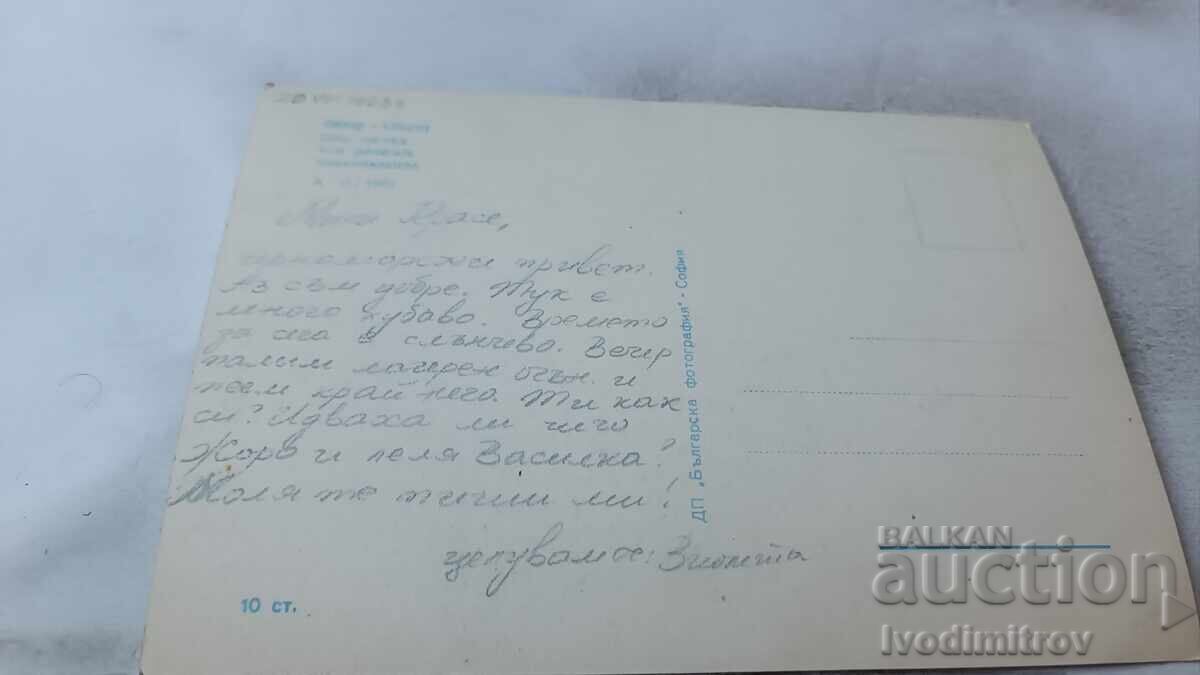 Красе,
черноморски привет.
Аз съм добре. Тук е
много хубаво. Времето
за сега е слънчево. Вечер
палим лагерен огън и
пеем край него. Ти как
си? Идваха ли чичо
Жоро и леля Василка?
Моля те пиши ми!
целувам те:
10 ст.
ДП „Българска фотография" - София
BALKAN
auction
Ivodimitrov